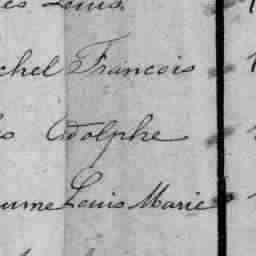 es Louis
chel Francois
s Adolphe
aume Louis Marie